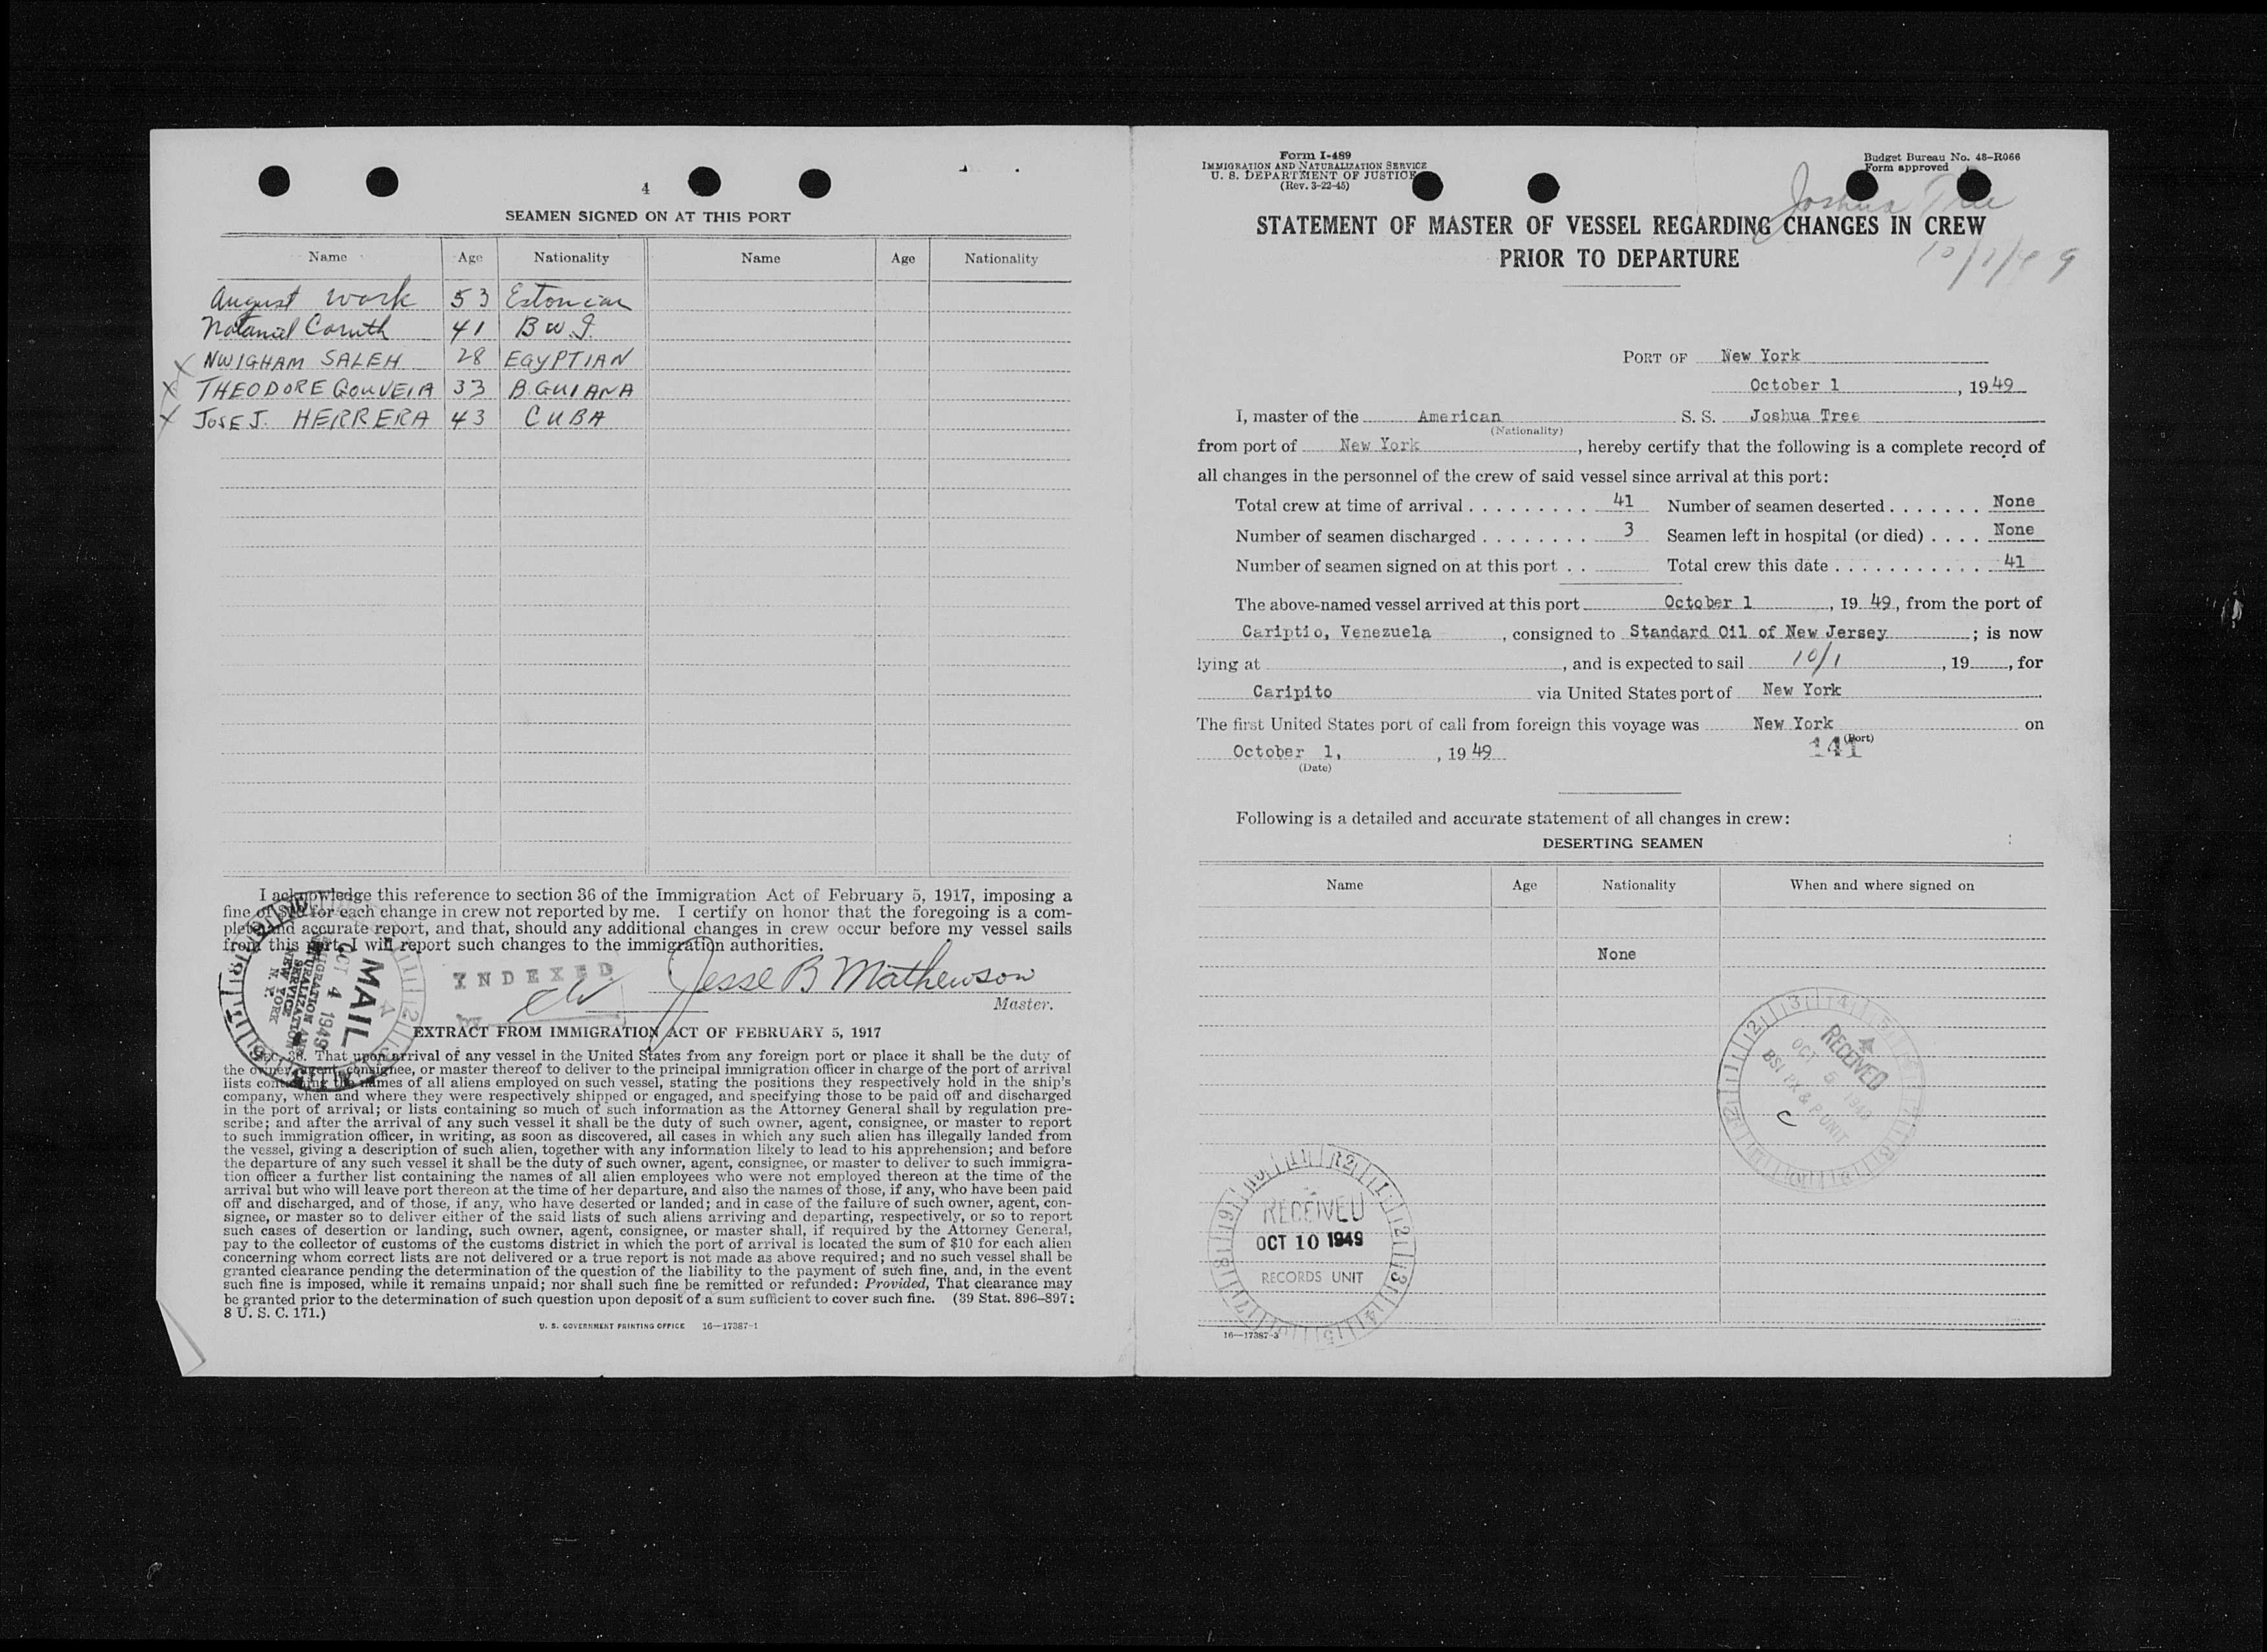 4
SEAMEN SIGNED ON AT THIS PORT
Name Age Nationality Name Age Nationality
August Work 53 Estonian
Nataniel Caruth 41 B W I.
X NWIGHAM SALEH 28 EGYPTIAN
X THEODORE GOUVEIA 33 B. GUIANA
X JOSE J. HERRERA 43 CUBA
I acknowledge this reference to section 36 of the Immigration Act of February 5, 1917, imposing a
fine of $10 for each change in crew not reported by me. I certify on honor that the foregoing is a com-
plete and accurate report, and that, should any additional changes in crew occur before my vessel sails
from this port, I will report such changes to the immigration authorities.
INDEXED
Jesse B Mathewson
Master.
MAIL
OCT 4 1949
IMMIGRATION AND
NATURALIZATION
SERVICE
NEW YORK
N. Y.
EXTRACT FROM IMMIGRATION ACT OF FEBRUARY 5, 1917
SEC. 36. That upon arrival of any vessel in the United States from any foreign port or place it shall be the duty of
the owner, agent, consignee, or master thereof to deliver to the principal immigration officer in charge of the port of arrival
lists containing the names of all aliens employed on such vessel, stating the positions they respectively hold in the ship's
company, when and where they were respectively shipped or engaged, and specifying those to be paid off and discharged
in the port of arrival; or lists containing so much of such information as the Attorney General shall by regulation pre-
scribe; and after the arrival of any such vessel it shall be the duty of such owner, agent, consignee, or master to report
to such immigration officer, in writing, as soon as discovered, all cases in which any such alien has illegally landed from
the vessel, giving a description of such alien, together with any information likely to lead to his apprehension; and before
the departure of any such vessel it shall be the duty of such owner, agent, consignee, or master to deliver to such immigra-
tion officer a further list containing the names of all alien employees who were not employed thereon at the time of the
arrival but who will leave port thereon at the time of her departure, and also the names of those, if any, who have been paid
off and discharged, and of those, if any, who have deserted or landed; and in case of the failure of such owner, agent, con-
signee, or master so to deliver either of the said lists of such aliens arriving and departing, respectively, or so to report
such cases of desertion or landing, such owner, agent, consignee, or master shall, if required by the Attorney General,
pay to the collector of customs of the customs district in which the port of arrival is located the sum of $10 for each alien
concerning whom correct lists are not delivered or a true report is not made as above required; and no such vessel shall be
granted clearance pending the determination of the question of the liability to the payment of such fine, and, in the event
such fine is imposed, while it remains unpaid; nor shall such fine be remitted or refunded: Provided, That clearance may
be granted prior to the determination of such question upon deposit of a sum sufficient to cover such fine. (39 Stat. 896–897;
8 U. S. C. 171.)
U. S. GOVERNMENT PRINTING OFFICE 16—17387-1
Form I-489
IMMIGRATION AND NATURALIZATION SERVICE
U. S. DEPARTMENT OF JUSTICE
(Rev. 3-22-45)
Budget Bureau No. 43-R066
Form approved
Joshua Tree
10/1/49
STATEMENT OF MASTER OF VESSEL REGARDING CHANGES IN CREW
PRIOR TO DEPARTURE
PORT OF New York
October 1, 1949
I, master of the American S. S. Joshua Tree
(Nationality)
from port of New York, hereby certify that the following is a complete record of
all changes in the personnel of the crew of said vessel since arrival at this port:
Total crew at time of arrival . . . . . . . . . 41 Number of seamen deserted . . . . . . . None
Number of seamen discharged . . . . . . . . 3 Seamen left in hospital (or died) . . . . None
Number of seamen signed on at this port . . Total crew this date . . . . . . . . . . . . 41
The above-named vessel arrived at this port October 1, 19 49, from the port of
Cariptio, Venezuela, consigned to Standard Oil of New Jersey; is now
lying at , and is expected to sail 10/1, 19 , for
Caripito via United States port of New York
The first United States port of call from foreign this voyage was New York on
(Port)
141
October 1, , 19 49
(Date)
Following is a detailed and accurate statement of all changes in crew:
DESERTING SEAMEN
Name Age Nationality When and where signed on
None
RECEIVED
OCT 5 1949
BSI PX & P UNIT
C
RECEIVED
OCT 10 1949
RECORDS UNIT
16—17387-3